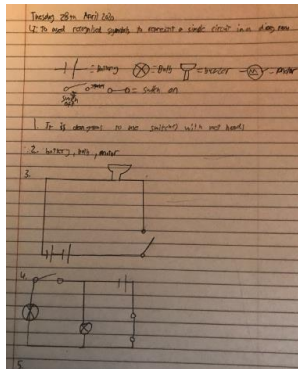 Tuesday 28th April 2020
to used recognised symbols to represent a simple circuit in a diagram
= battery = Bulb = buzzer = motor
= switch on
1. It is dangerous to use switches with wet hands
2. battery, bulb, motor
3.
4.
5.